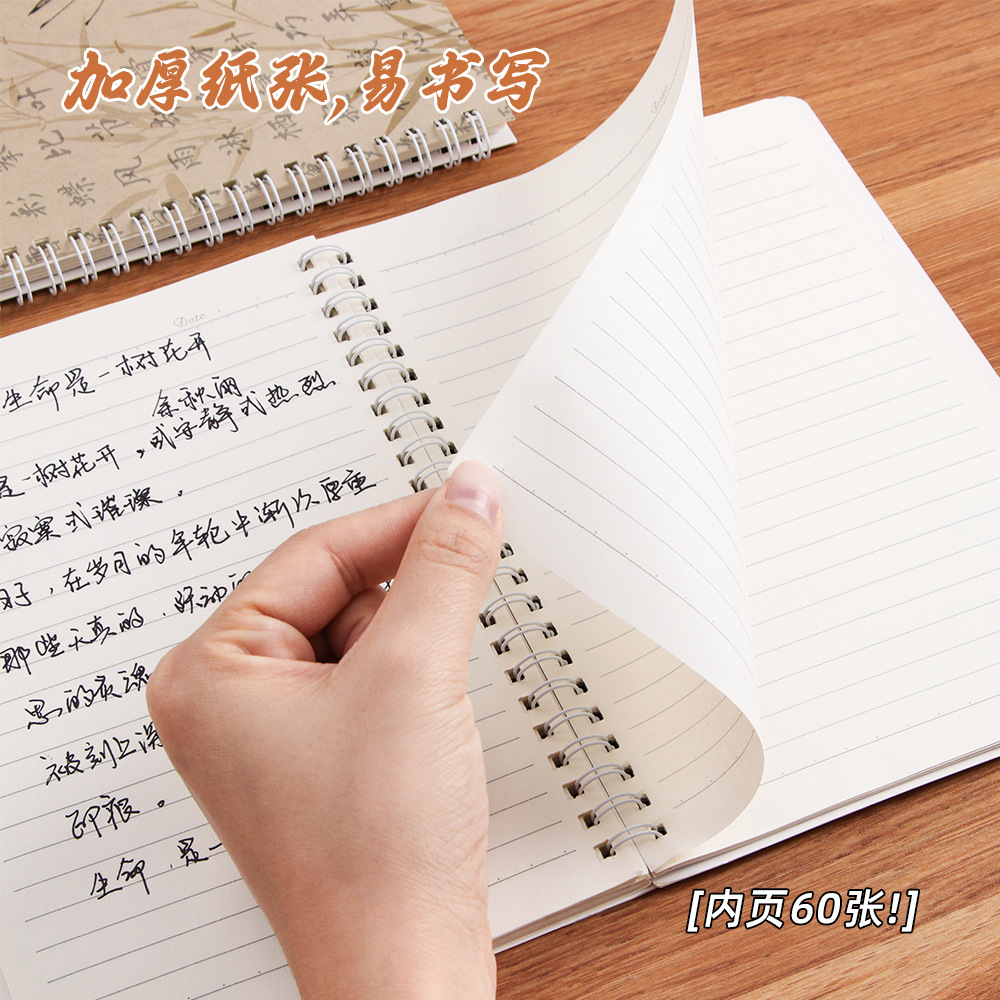 加厚纸张,易书写
Date
Date
生命是一树花开
余秋雨
是一树花开，或安静或热烈
寂寞或璀璨。
好，在岁月的年轮中渐次厚重
那些天真的、跃动的
思的夜魂
被刻上深
印痕。
生命，是一
[内页60张!]